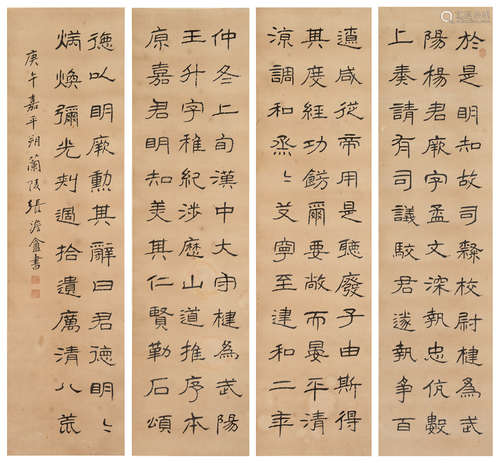 於是明知故司隸校尉楗為武
陽楊君厥字孟文深執忠伉數
上奏請有司議駮君遂執爭百
遼咸從帝用是聽廢子由斯得
其度經功飭爾要敞而晏平清
涼調和烝〻艾寧至建和二年
仲冬上旬漢中大守楗為武陽
王升字稚紀涉歷山道推序本
原嘉君明知美其仁賢勒石頌
德以明厥勳其辭曰君德明〻
炳煥彌光刺過拾遺厲清八荒
庚午嘉平朔蘭陵張澹盦書